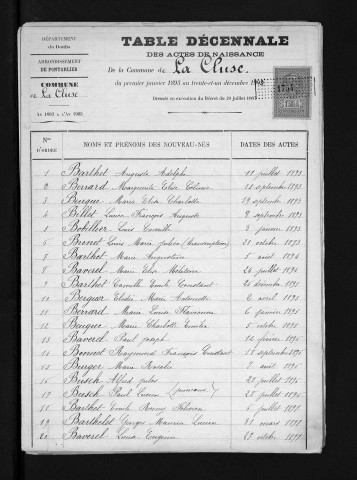 DÉPARTEMENT
du Doubs
ARRONDISSEMENT
DE PONTARLIER
COMMUNE
de La Cluse
AN 1893 à l'An 1903
TABLE DÉCENNALE
DES ACTES DE NAISSANCE
De la Commune de La Cluse
du premier janvier 1893 au trente-et-un décembre
Dressée en exécution du Décret du 20 juillet 1807
Nos D'ORDRE
NOMS ET PRÉNOMS DES NOUVEAU-NÉS
DATES DES ACTES
1 Barthet Auguste Adolphe 11 juillet 1893
2 Berrard Marguerite Elise 21 septembre 1893
3 Marie Elisa Charlotte 29 septembre 1893
4 Billot Lucien François Auguste 8 septembre 1893
5 Bobillier Louis Camille 3 janvier 1893
6 Brenet Louis Marie Jules (Transcription) 21 octobre 1893
7 Barthet Marie Augustine 5 août 1894
8 Baverel Marie Elisa 24 juillet 1894
9 Barthet Camille Emile Constant 24 décembre 1895
10 Berguer Elodie Marie Antoinette 6 avril 1895
11 Berrard Marie Louise 6 janvier 1895
12 Marie Charlotte Emilie 5 octobre 1895
13 Baverel Paul Joseph 12 février 1896
14 Raymond François Constant 18 septembre 1896
15 Burger Marie Rosalie 7 août 1896
16 Alfred Jules 28 juillet 1896
17 Paul Lucien (jumeaux) 28 juillet 1896
18 Barthet Emile 5 juillet 1897
19 Barthelet Georges Maurice Lucien 31 mars 1897
20 Baverel Lucia Eugénie 27 octobre 1897